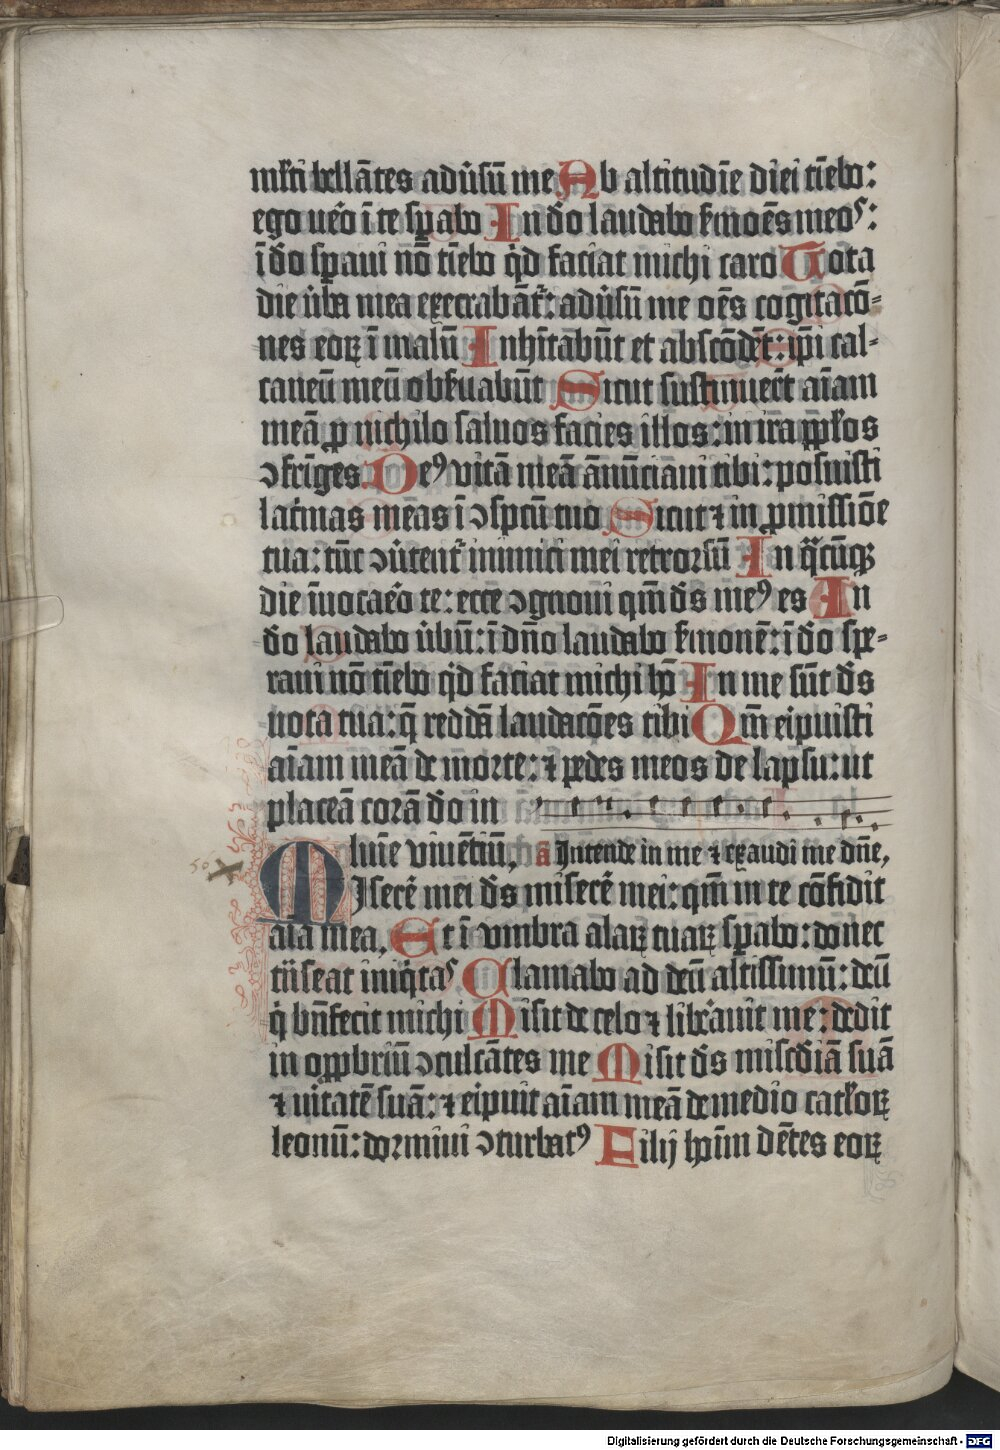 ml̄ti bellātes adu̇sū me Ab altitudīe diei tīebo:
ego ue᷒o ī te sꝑabo In dō laudabo ẜmoēs meoˢ:
ī dō sꝑaui nō tīebo qͥd faciat michi caro Tota
die u̇ba mea execrabāt᷑: adu̇sū me oēs cogitacō⸗
nes eoꝝ ī malū Inhītabūt et abscōdēt: ip̄i cal⸗
caneū meū obẜuabūt Sicut sustinuer̄t aīam
meā ꝓ nichilo saluos facies illos: in ira pp̄ľos
ↄfrīges. Deꝰ vitā meā ānūciaui tibi: posuisti
lac᷒mas mēas ī ↄspc̄u tuo Sicut ⁊ in ꝓmissiōe
tua: tūc ↄu̇tent᷑ inimici mei retrorsū In qͣcūqꝫ
die īuocaue᷒o te: ecce ↄgnoui qm̄ dꝰs meꝰ es In
dō laudabo u̇bū: ī dn̄o laudabo ẜmonē: ī dō spe⸗
raui nō tīebo qͥd faciat michi hō In me sūt dꝰs
uota tua: q̄ reddā laudacōes tibi Qm̄ eipuisti
aīam meā de morte: ⁊ pedes meos de lapsu: ut
placeā corā dō in
lumīe viuētiū, ā Intende in me ⁊ exaudi me dn̄e,
Miserē mei dꝰs miserē mei: qm̄ in te cōfidit
aīa mea, Et ī vmbra alaꝝ tuaꝝ sꝑabo: donec
tn̄seat iniqͥtaˢ Clamabo ad deū altissimū: deū
qͥ bn̄fecit michi Misit de celo ⁊ libe᷒auit me: dedit
in opp̄briū ↄculcātes me Misit dꝰs misc̄diā suā
⁊ u̇itatē suā: ⁊ eipuit aīam meā de medio catľoꝝ
leonū: dormiui ↄturbatꝰ Filij hoīm dētes eoꝝ
50
Digitalisierung gefördert durch die Deutsche Forschungsgemeinschaft - DFG